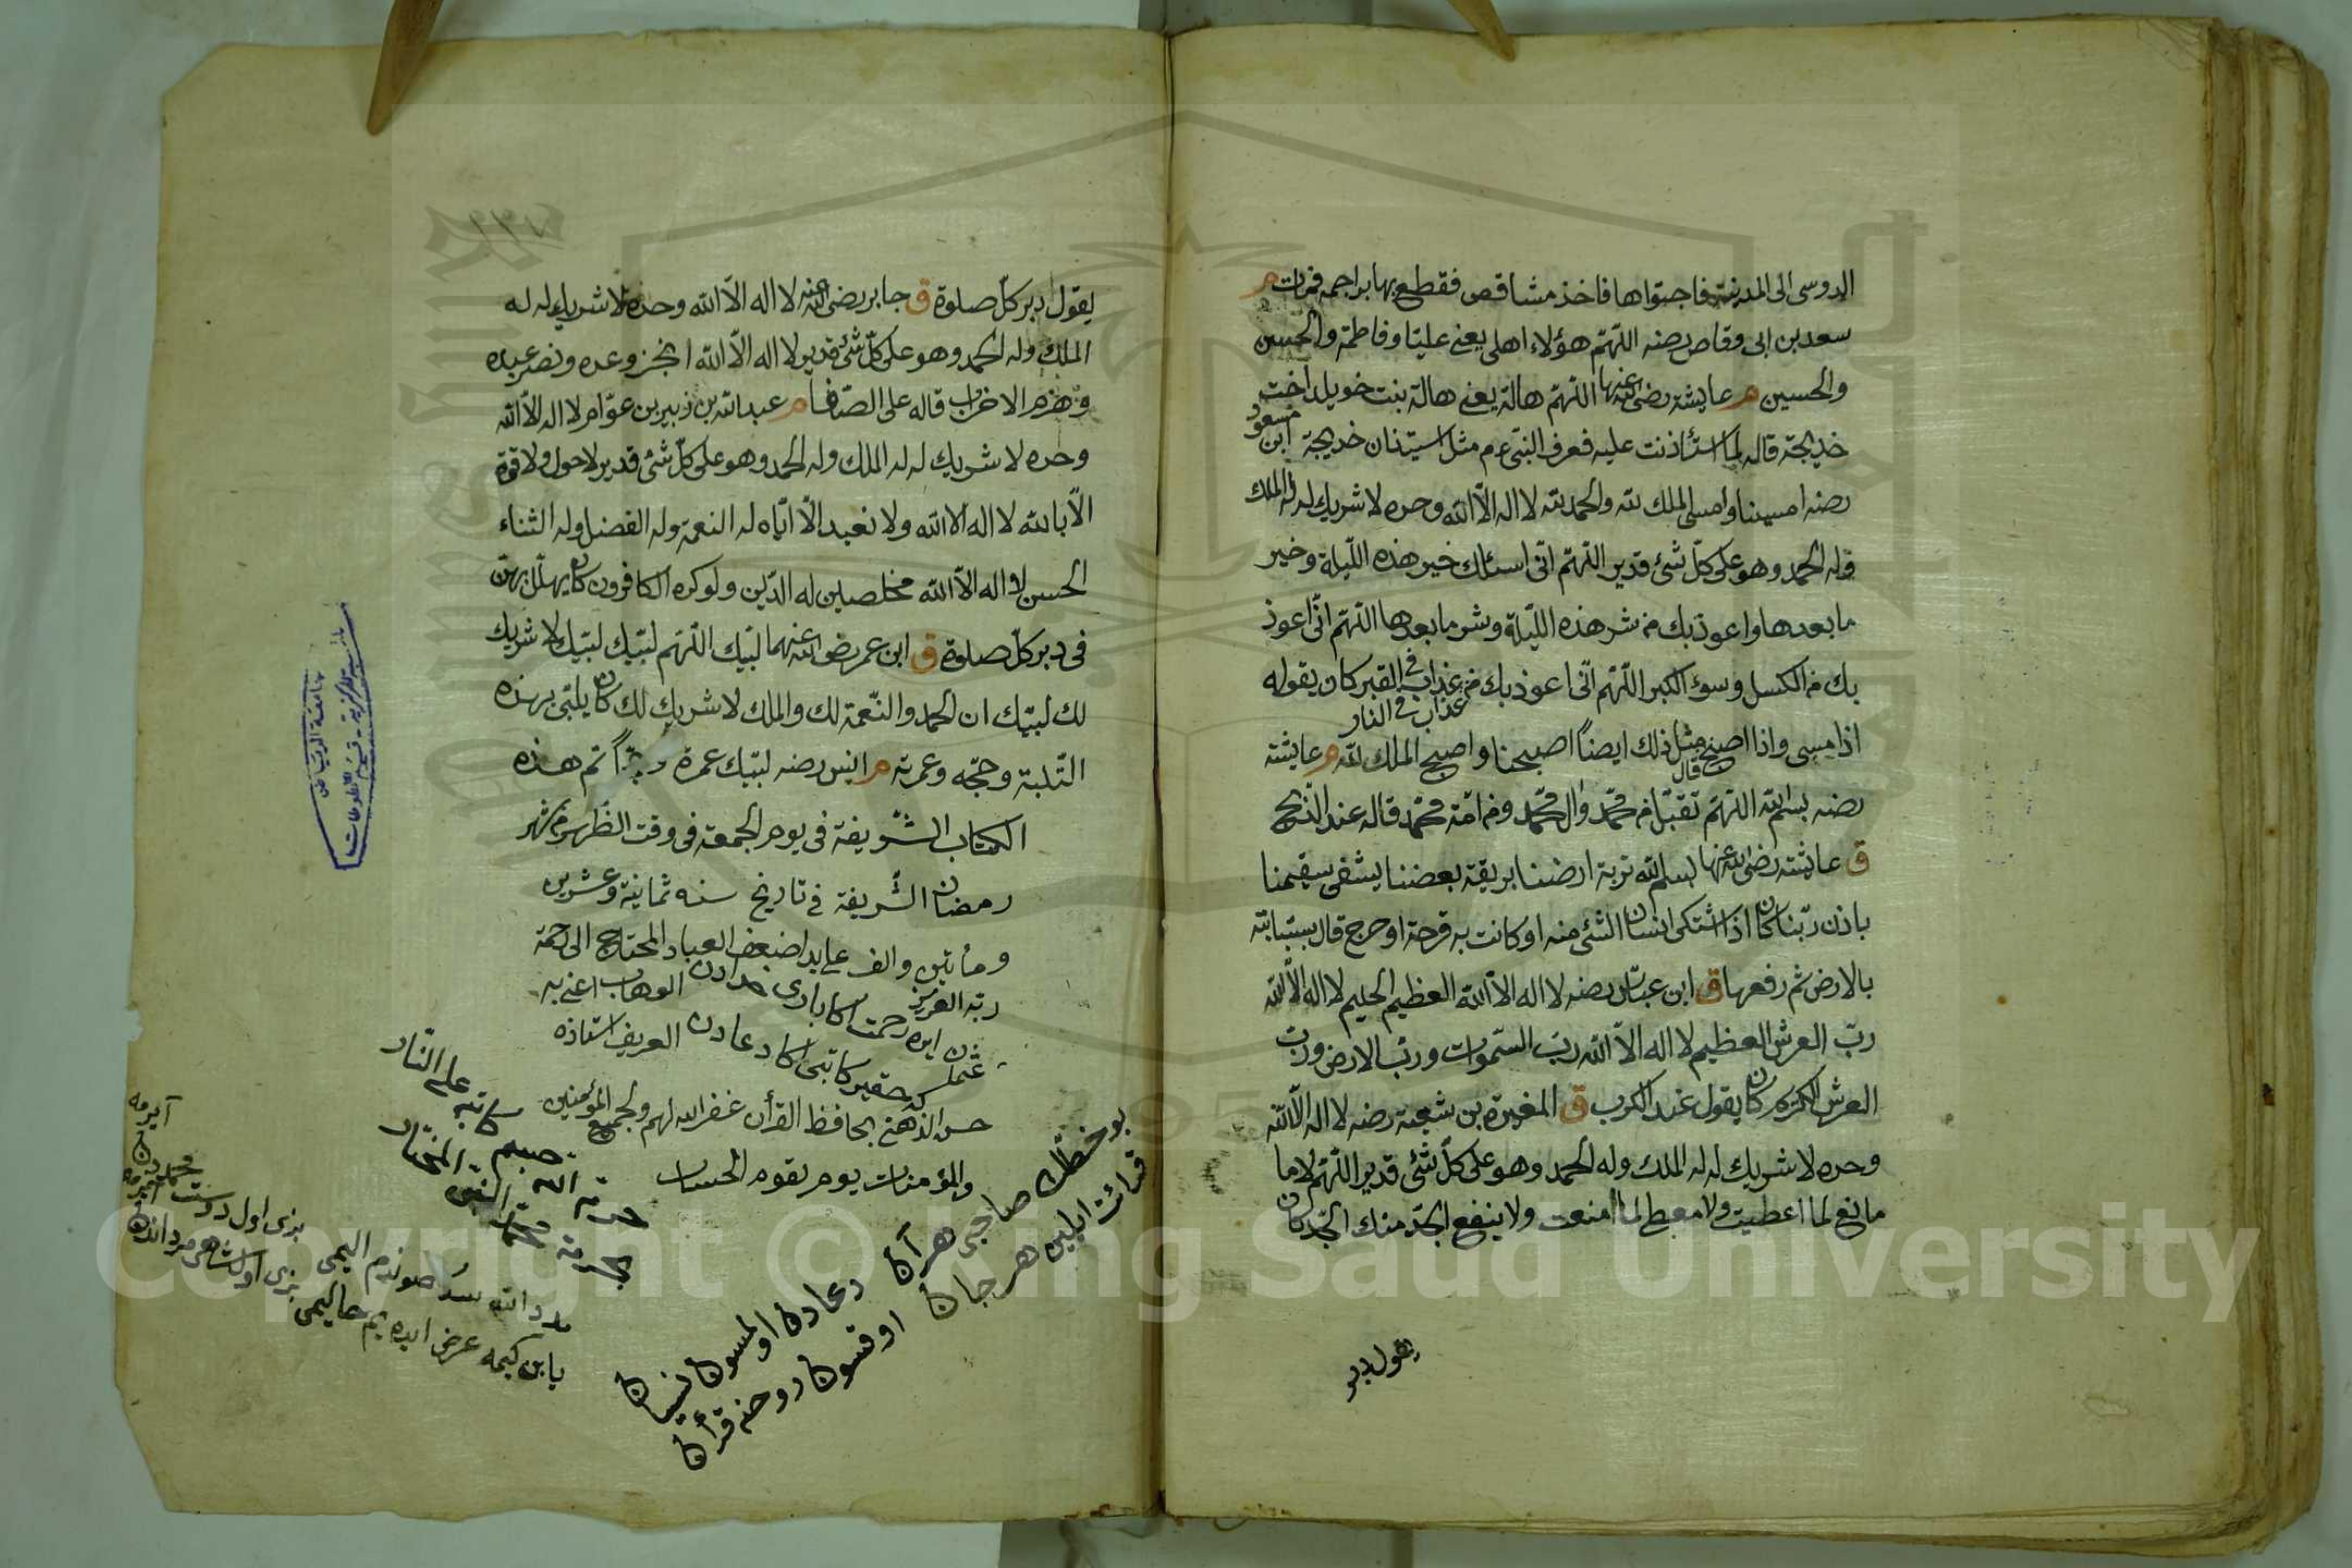 الدوسى الى المدينة فاجتواها فاخذ مشاقص فقطع بها براجمه فمات م
سعد بن ابى وقاص رضه اللهم هؤلاء اهلى يعنى عليا وفاطمة والحسن
والحسين م عايشة رضى الله عنها اللهم هالة يعنى هالة بنت خويلد اخت
خديجة قاله لما استأذنت عليه فعرف النبى عم مثل استيذان خديجة م ابن مسعود
رضه امسينا وامسى الملك لله والحمد لله لا اله الا الله وحده لا شريك له له الملك
وله الحمد وهو على كل شئ قدير اللهم انى اسئلك خير هذه الليلة وخير
ما بعدها واعوذ بك من شر هذه الليلة وشر ما بعدها اللهم انى اعوذ
بك من الكسل وسوء الكبر اللهم انى اعوذ بك من عذاب فى القبر كان يقوله
عذاب فى النار
اذا امسى واذا اصبح قال مثل ذلك ايضاً اصبحنا واصبح الملك لله م عايشة
رضه بسم الله اللهم تقبل من محمد وال محمد ومن امة محمد قاله عند الذبح
ق عايشة رضى الله عنها بسم الله تربة ارضنا بريقة بعضنا يشفى سقيمنا
باذن ربنا كان اذا اشتكى انسان الشئ منه او كانت به قرحة او جرح قال بسبابته
بالارض ثم رفعها ق ابن عباس رضه لا اله الا الله العظيم الحليم لا اله الا الله
رب العرش العظيم لا اله الا الله رب السموات ورب الارض ورب
العرش الكريم كان يقول عند الكرب ق المغيرة بن شعبة رضه لا اله الا الله
وحده لا شريك له له الملك وله الحمد وهو على كل شئ قدير اللهم لا ما
مانع لما اعطيت ولا معطى لما منعت ولا ينفع الجد منك الجد كان
يقول دبر
يقول دبر كل صلوة ق جابر رضى الله عنه لا اله الا الله وحده لا شريك له له
الملك وله الحمد وهو على كل شئ قدير لا اله الا الله انجز وعده ونصر عبده
وهزم الاحزاب قاله على الصفا م عبد الله بن زبير بن عوام لا اله الا الله
وحده لا شريك له له الملك وله الحمد وهو على كل شئ قدير لا حول ولا قوة
الا بالله لا اله الا الله ولا نعبد الا اياه له النعمة وله الفضل وله الثناء
الحسن لا اله الا الله مخلصين له الدين ولو كره الكافرون كان يهلل بهن
فى دبر كل صلوة ق ابن عمر رضى الله عنهما لبيك اللهم لبيك لبيك لا شريك
لك لبيك ان الحمد والنعمة لك والملك لا شريك لك كان يلبى بهذه
التلبية وحجه وعمرته م انس رضه لبيك عمرة وحجاً تم هذه
الكتاب الشريفة فى يوم الجمعة فى وقت الظهر من شهر
رمضان الشريفة فى تاريخ سنه ثمانية وعشرين
ومأتين والف على يد اضعف العباد المحتاج الى رحمة
ربه العزيز الوهاب اعنى به
ايده رحمت اكا بارى خدادن
حقير كاتبى اكا دعادن العريف استاذه
حسن الذهنى بحافظ القرأن غفر الله لهم ولجميع المؤمنين
والمؤمنات يوم يقوم الحساب
كاتبه على النار
بحرمة محمد النبى المختار
بو خطك صاحبى هر آن دعادن اولمسون نسيان
قرائت ايلين هر جان اوقسون روحنه قرأن